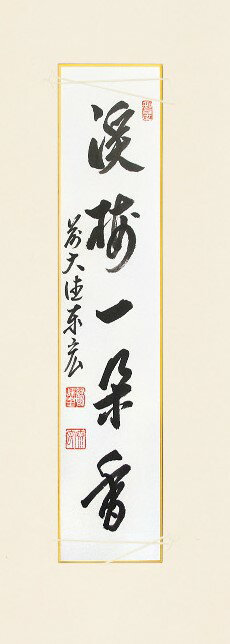 渓梅一朶香
前大徳東宏